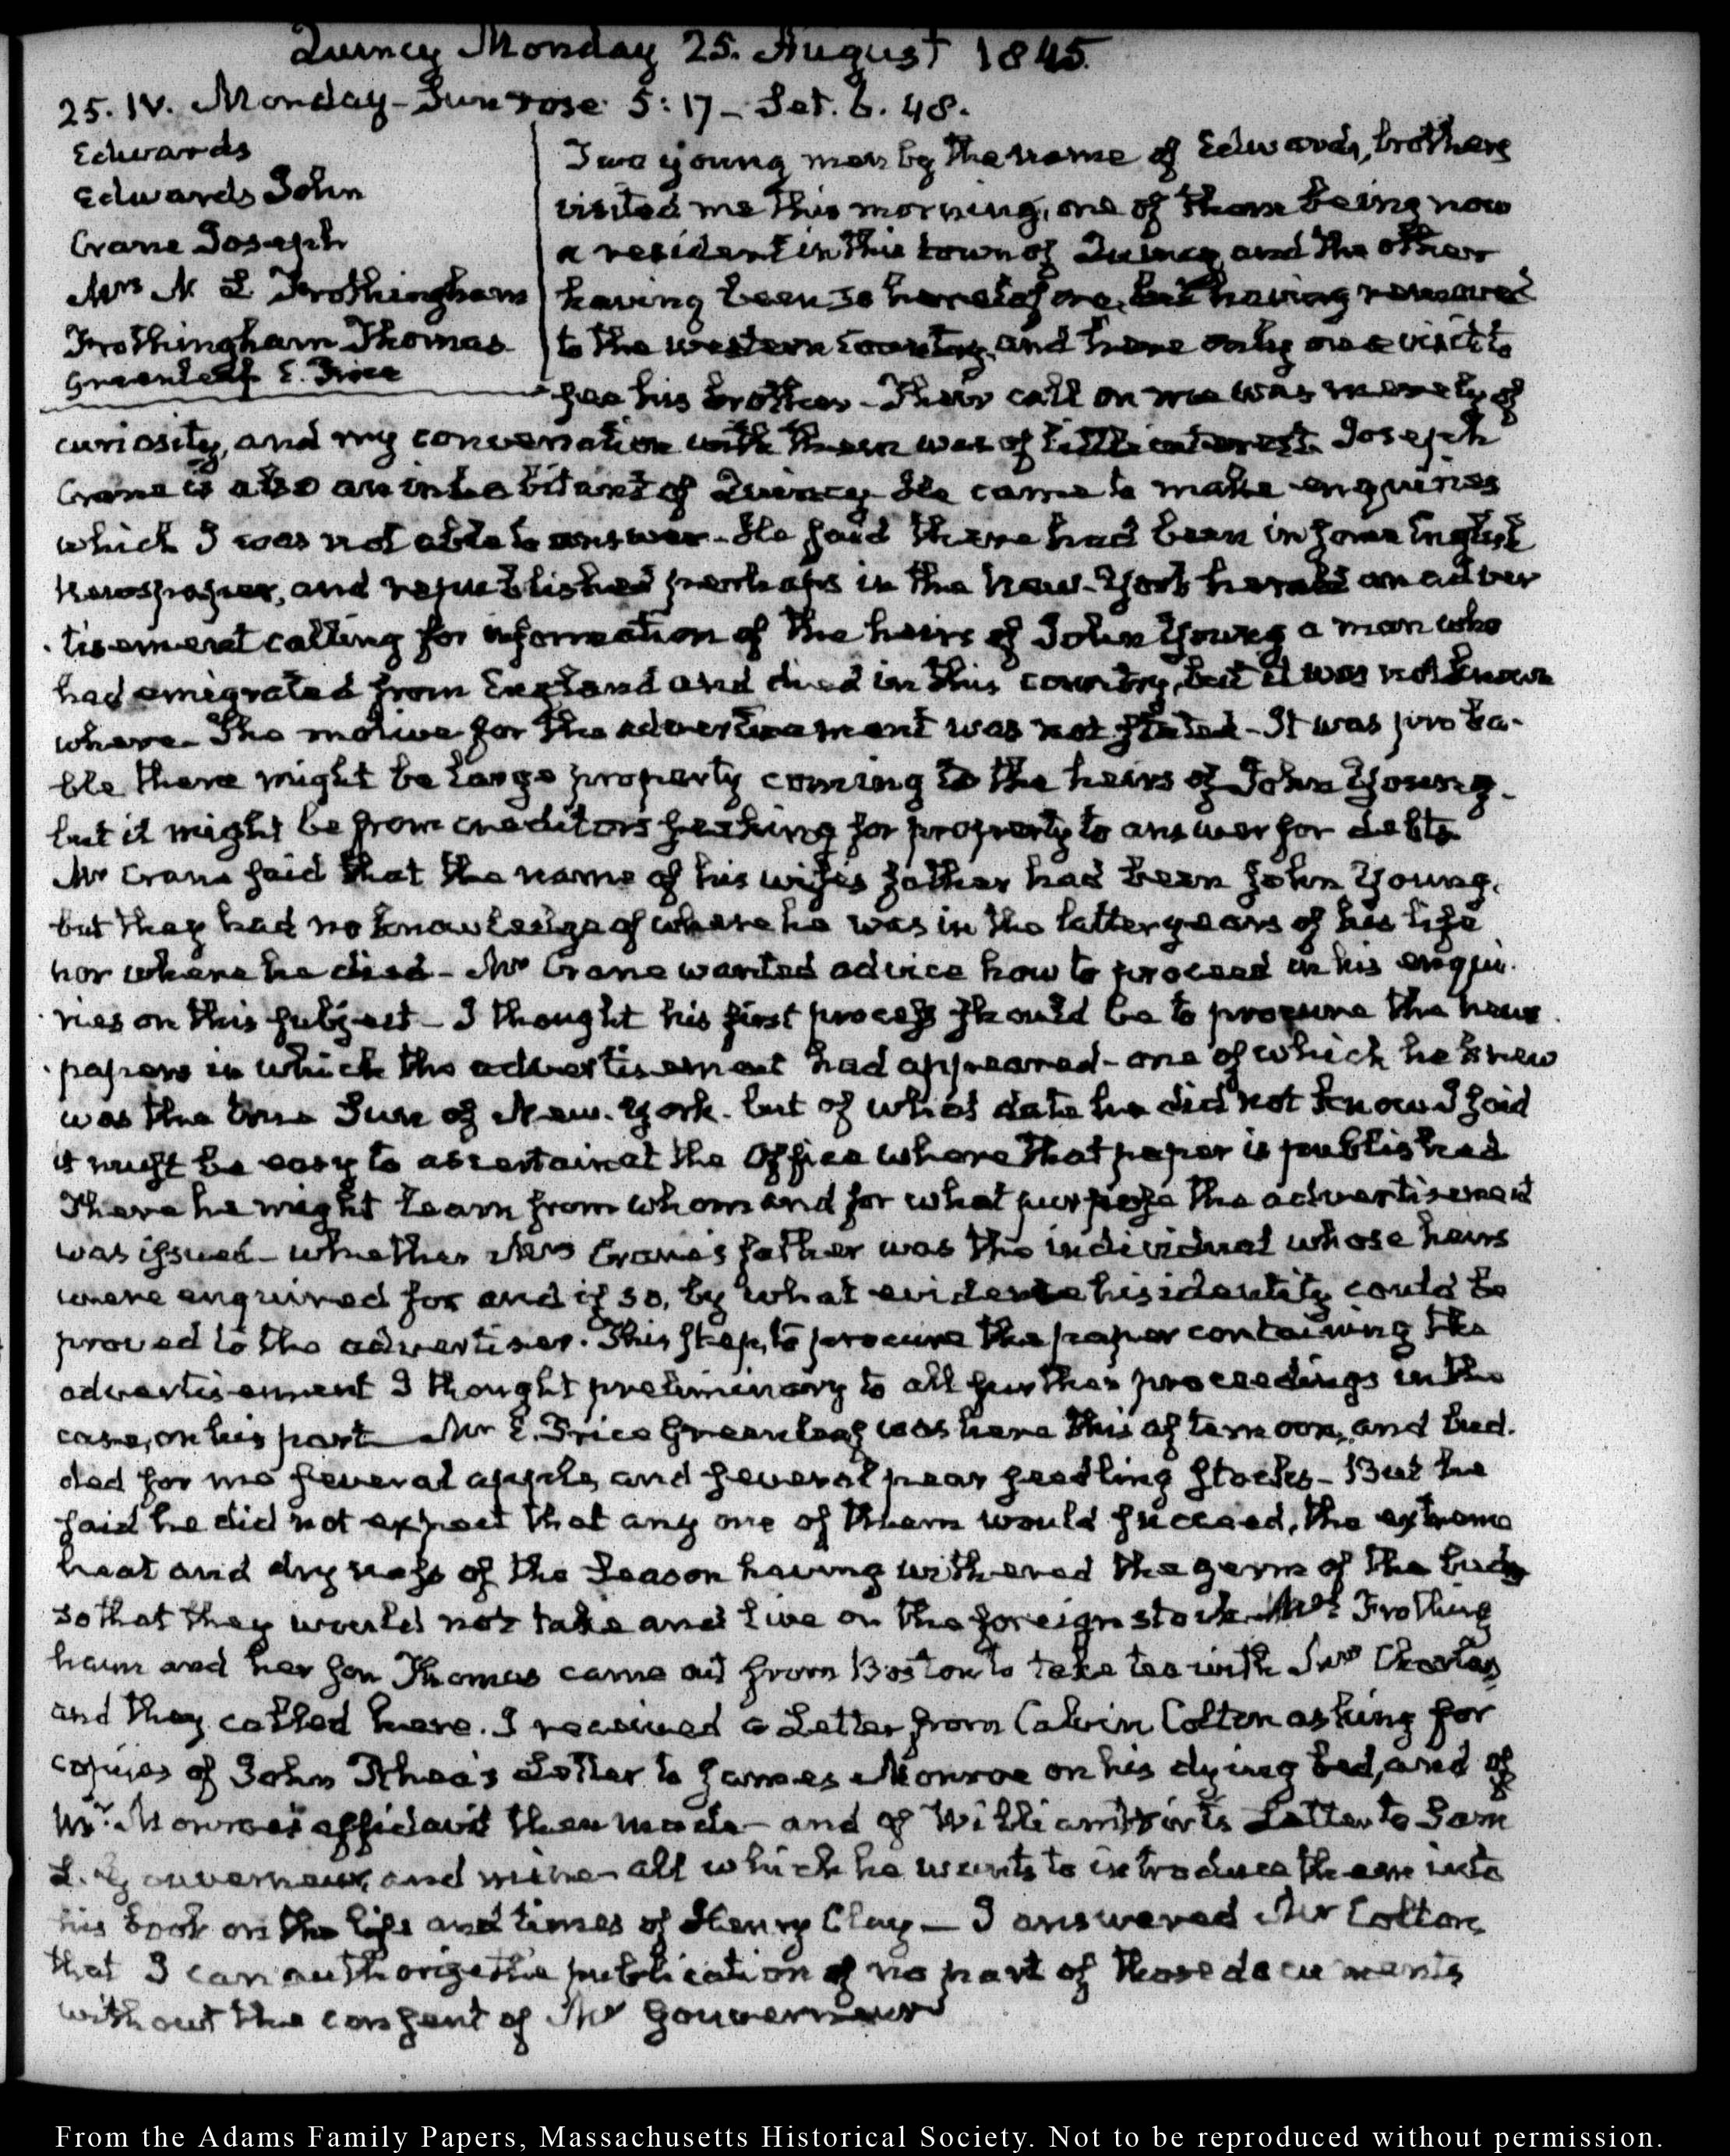 Quincy Monday 25. August 1845.
25. IV. Monday - Sun rose 5:17 - Set. 6. 48.
Edwards
Edwards John
Crane Joseph
Mrs N L Frothingham
Frothingham Thomas
Greenleaf E. Price
Two young men by the name of Edwards, brothers
visited me this morning, one of them being now
a resident in this town of Quincy, and the other
having been so heretofore, but having removed
to the western Country, and here only on a visit to
see his brother - Their call on me was merely of
curiosity, and my conversation with them was of little interest. Joseph
Crane is also an inhabitant of Quincy - He came to make enquiries
which I was not able to answer - He said there had been in some English
Newspaper, and republished perhaps in the New-York herald an adver
tisement calling for information of the heirs of John Young a man who
had emigrated from England and died in this country, but it was not known
where - The motive for the advertisement was not stated - It was proba-
ble there might be large property coming to the heirs of John Young -
but it might be from creditors seeking for property to answer for debts
Mr Crane said that the name of his wife's father had been John Young,
but they had no knowledge of where he was in the latter years of his life
nor where he died - Mr Crane wanted advice how to proceed in his enqui-
ries on this subject - I thought his first process should be to procure the news
papers in which the advertisement had appeared - one of which he knew
was the true Sun of New-York - but of what date he did not know I said
it must be easy to ascertain at the Office where that paper is published
There he might learn from whom and for what purpose the advertisement
was issued - whether Mrs Crane's father was the individual whose heirs
were enquired for and if so, by what evidence his identity could be
proved to the advertiser. This step, to procure the paper containing the
advertisement I thought preliminary to all further proceedings in the
case, on his part - Mr E. Price Greenleaf was here this afternoon, and bud-
ded for me several apple, and several pear seedling stocks - But he
said he did not expect that any one of them would succeed, the extreme
heat and dryness of the Season having withered the germ of the buds
so that they would not take and live on the foreign stock. Mrs Frothing
ham and her son Thomas came out from Boston to take tea with Mrs Charles
and they called here. I received a Letter from Calvin Colton asking for
copies of John Rhea's Letter to James Monroe on his dying bed, and of
Mr. Monroe's affidavit then made - and of William Wirt's Letter to Sam
L. Gouverneur, and mine - all which he wants to introduce them into
his book on the life and times of Henry Clay - I answered Mr Colton
that I can authorize the publication of no part of those documents
without the consent of Mr Gouverneur
From the Adams Family Papers, Massachusetts Historical Society. Not to be reproduced without permission.